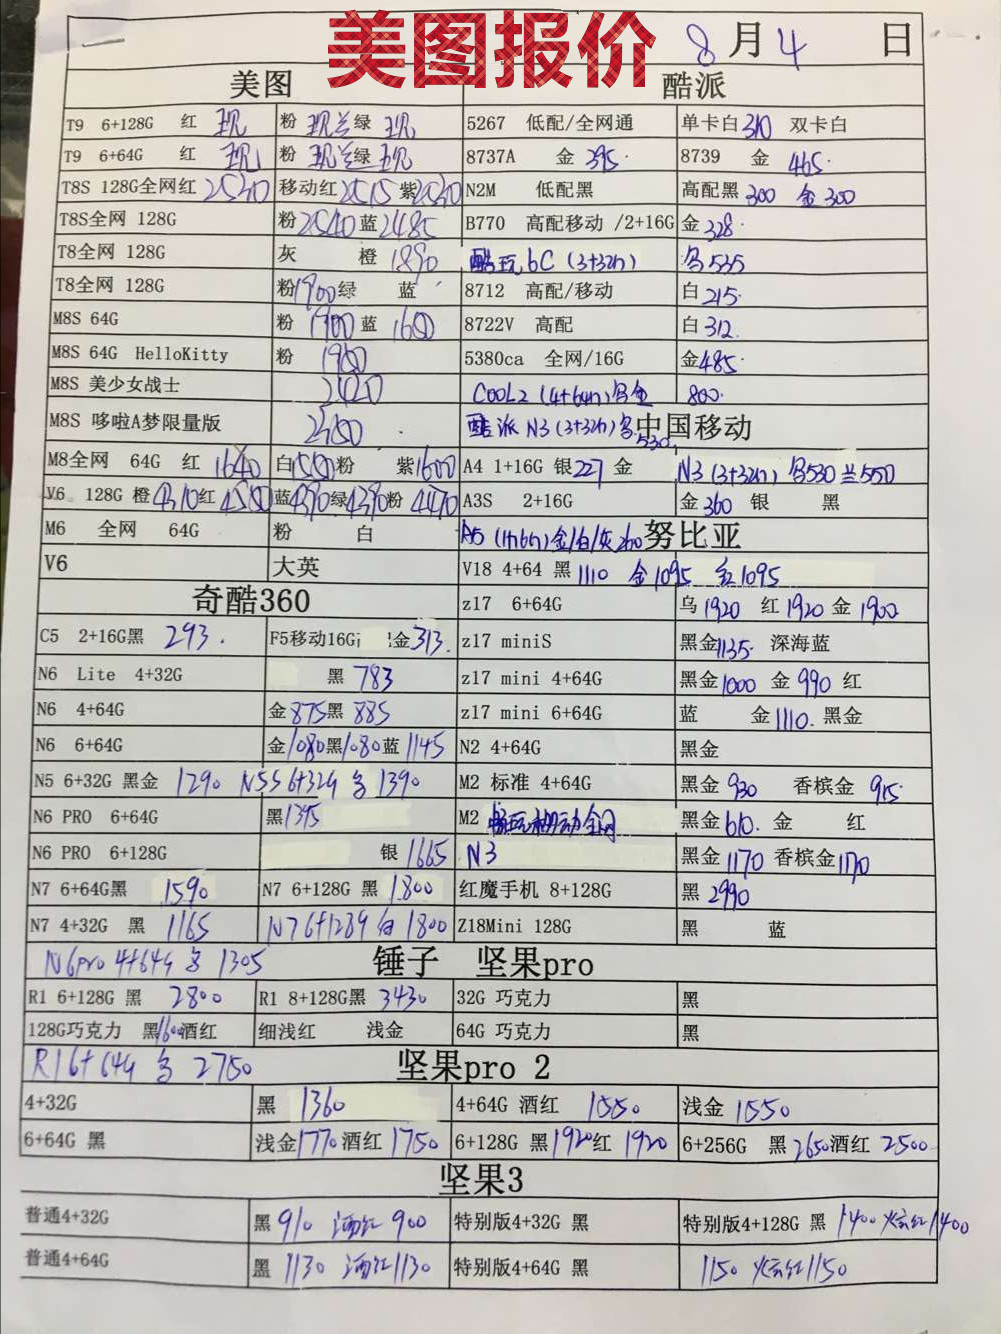 美图报价 8月4日
美图 酷派
T9 6+128G 红 现 粉 现 兰 绿 现 5267 低配/全网通 单卡白 310 双卡白
T9 6+64G 红 现 粉 现 兰 绿 现 8737A 金 395 8739 金 465
T8S 128G全网红 2530 移动红 2515 紫 2530 N2M 低配黑 高配黑 300 金 300
T8S全网 128G 粉 2540 蓝 2485 B770 高配移动 /2+16G 金 328
T8全网 128G 灰 橙 1890 酷玩6C (3+32G) 535
T8全网 128G 粉 1900 绿 蓝 8712 高配/移动 白 215
M8S 64G 粉 1900 蓝 1600 8722V 高配 白 312
M8S 64G HelloKitty 粉 5380ca 全网/16G 金 485
M8S 美少女战士 2420 COOL2 (4+64G) 800
M8S 哆啦A梦限量版 酷派 N3 (3+32G) 530 中国移动
M8全网 64G 红 1640 白 粉 紫 1600 A4 1+16G 银 227 金 N3 (3+32G) 530 兰 550
V6 128G 橙 4310 红 蓝 4390 绿 4390 粉 4470 A3S 2+16G 金 360 银 黑
M6 全网 64G 粉 白 A5 金/白/灰 260 努比亚
V6 大英 V18 4+64 黑 1110 金 1095 红 1095
奇酷360 z17 6+64G 乌 1920 红 1920 金 1900
C5 2+16G黑 293. F5移动16G 金 313. z17 miniS 黑金 1135 深海蓝
N6 Lite 4+32G 黑 783 z17 mini 4+64G 黑金 1000 金 990 红
N6 4+64G 金 875 黑 885 z17 mini 6+64G 蓝 金 1110. 黑金
N6 6+64G 金 1080 黑 1080 蓝 1145 N2 4+64G 黑金
N5 6+32G 黑金 1290 N5S 6+32G 1390 M2 标准 4+64G 黑金 930 香槟金 915
N6 PRO 6+64G 黑 1345 M2 畅玩移动全网 黑金 610. 金 红
N6 PRO 6+128G 银 1665 N3 黑金 1170 香槟金 1170
N7 6+64G黑 1590 N7 6+128G 黑 1800 红魔手机 8+128G 黑 2990
N7 4+32G 黑 1165 N7 6+128G 白 1800 Z18Mini 128G 黑 蓝
N6pro 4+64G 1305 锤子 坚果pro
R1 6+128G 黑 2800 R1 8+128G黑 3430 32G 巧克力 黑
128G巧克力 黑 1600 酒红 细浅红 浅金 64G 巧克力 黑
R1 6+64G 2750 坚果pro 2
4+32G 黑 1360 4+64G 酒红 1550 浅金 1550
6+64G 黑 浅金 1770 酒红 1750 6+128G 黑 1920 红 1920 6+256G 黑 2650 酒红 2500
坚果3
普通4+32G 黑 910 酒红 900 特别版4+32G 黑 特别版4+128G 黑 1400 炫红 1400
普通4+64G 黑 1130 酒红 1130 特别版4+64G 黑 1150 炫红 1150